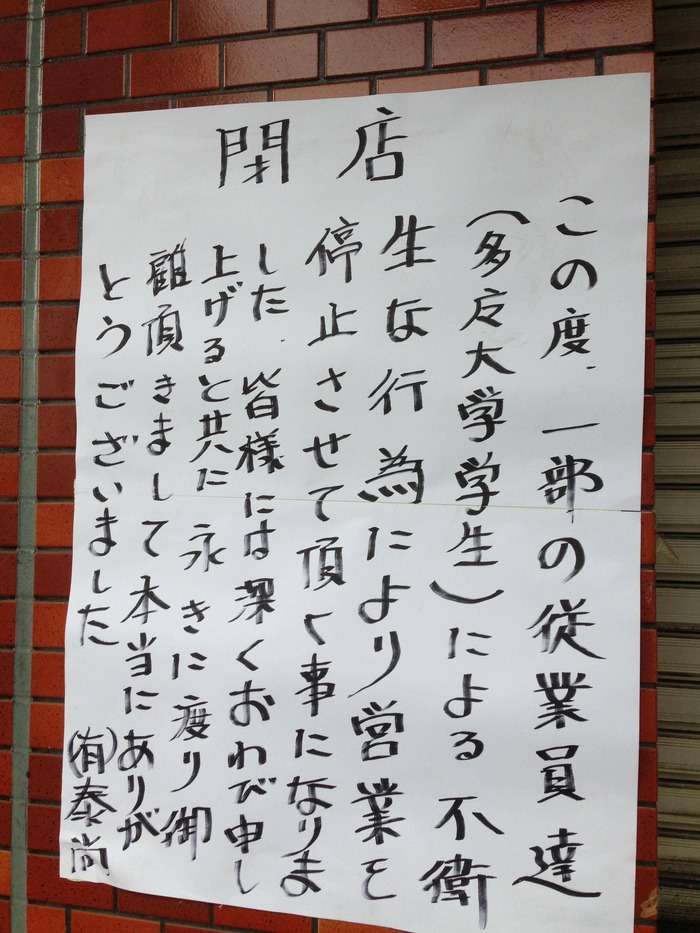 閉店
この度、一部の従業員達
(多摩大学学生)による不衛
生な行為により営業を
停止させて頂く事になりま
した、皆様には深くおわび申し
上げると共に永きに渡り御
顧頂きまして本当にありが
とうございました
(有)泰尚